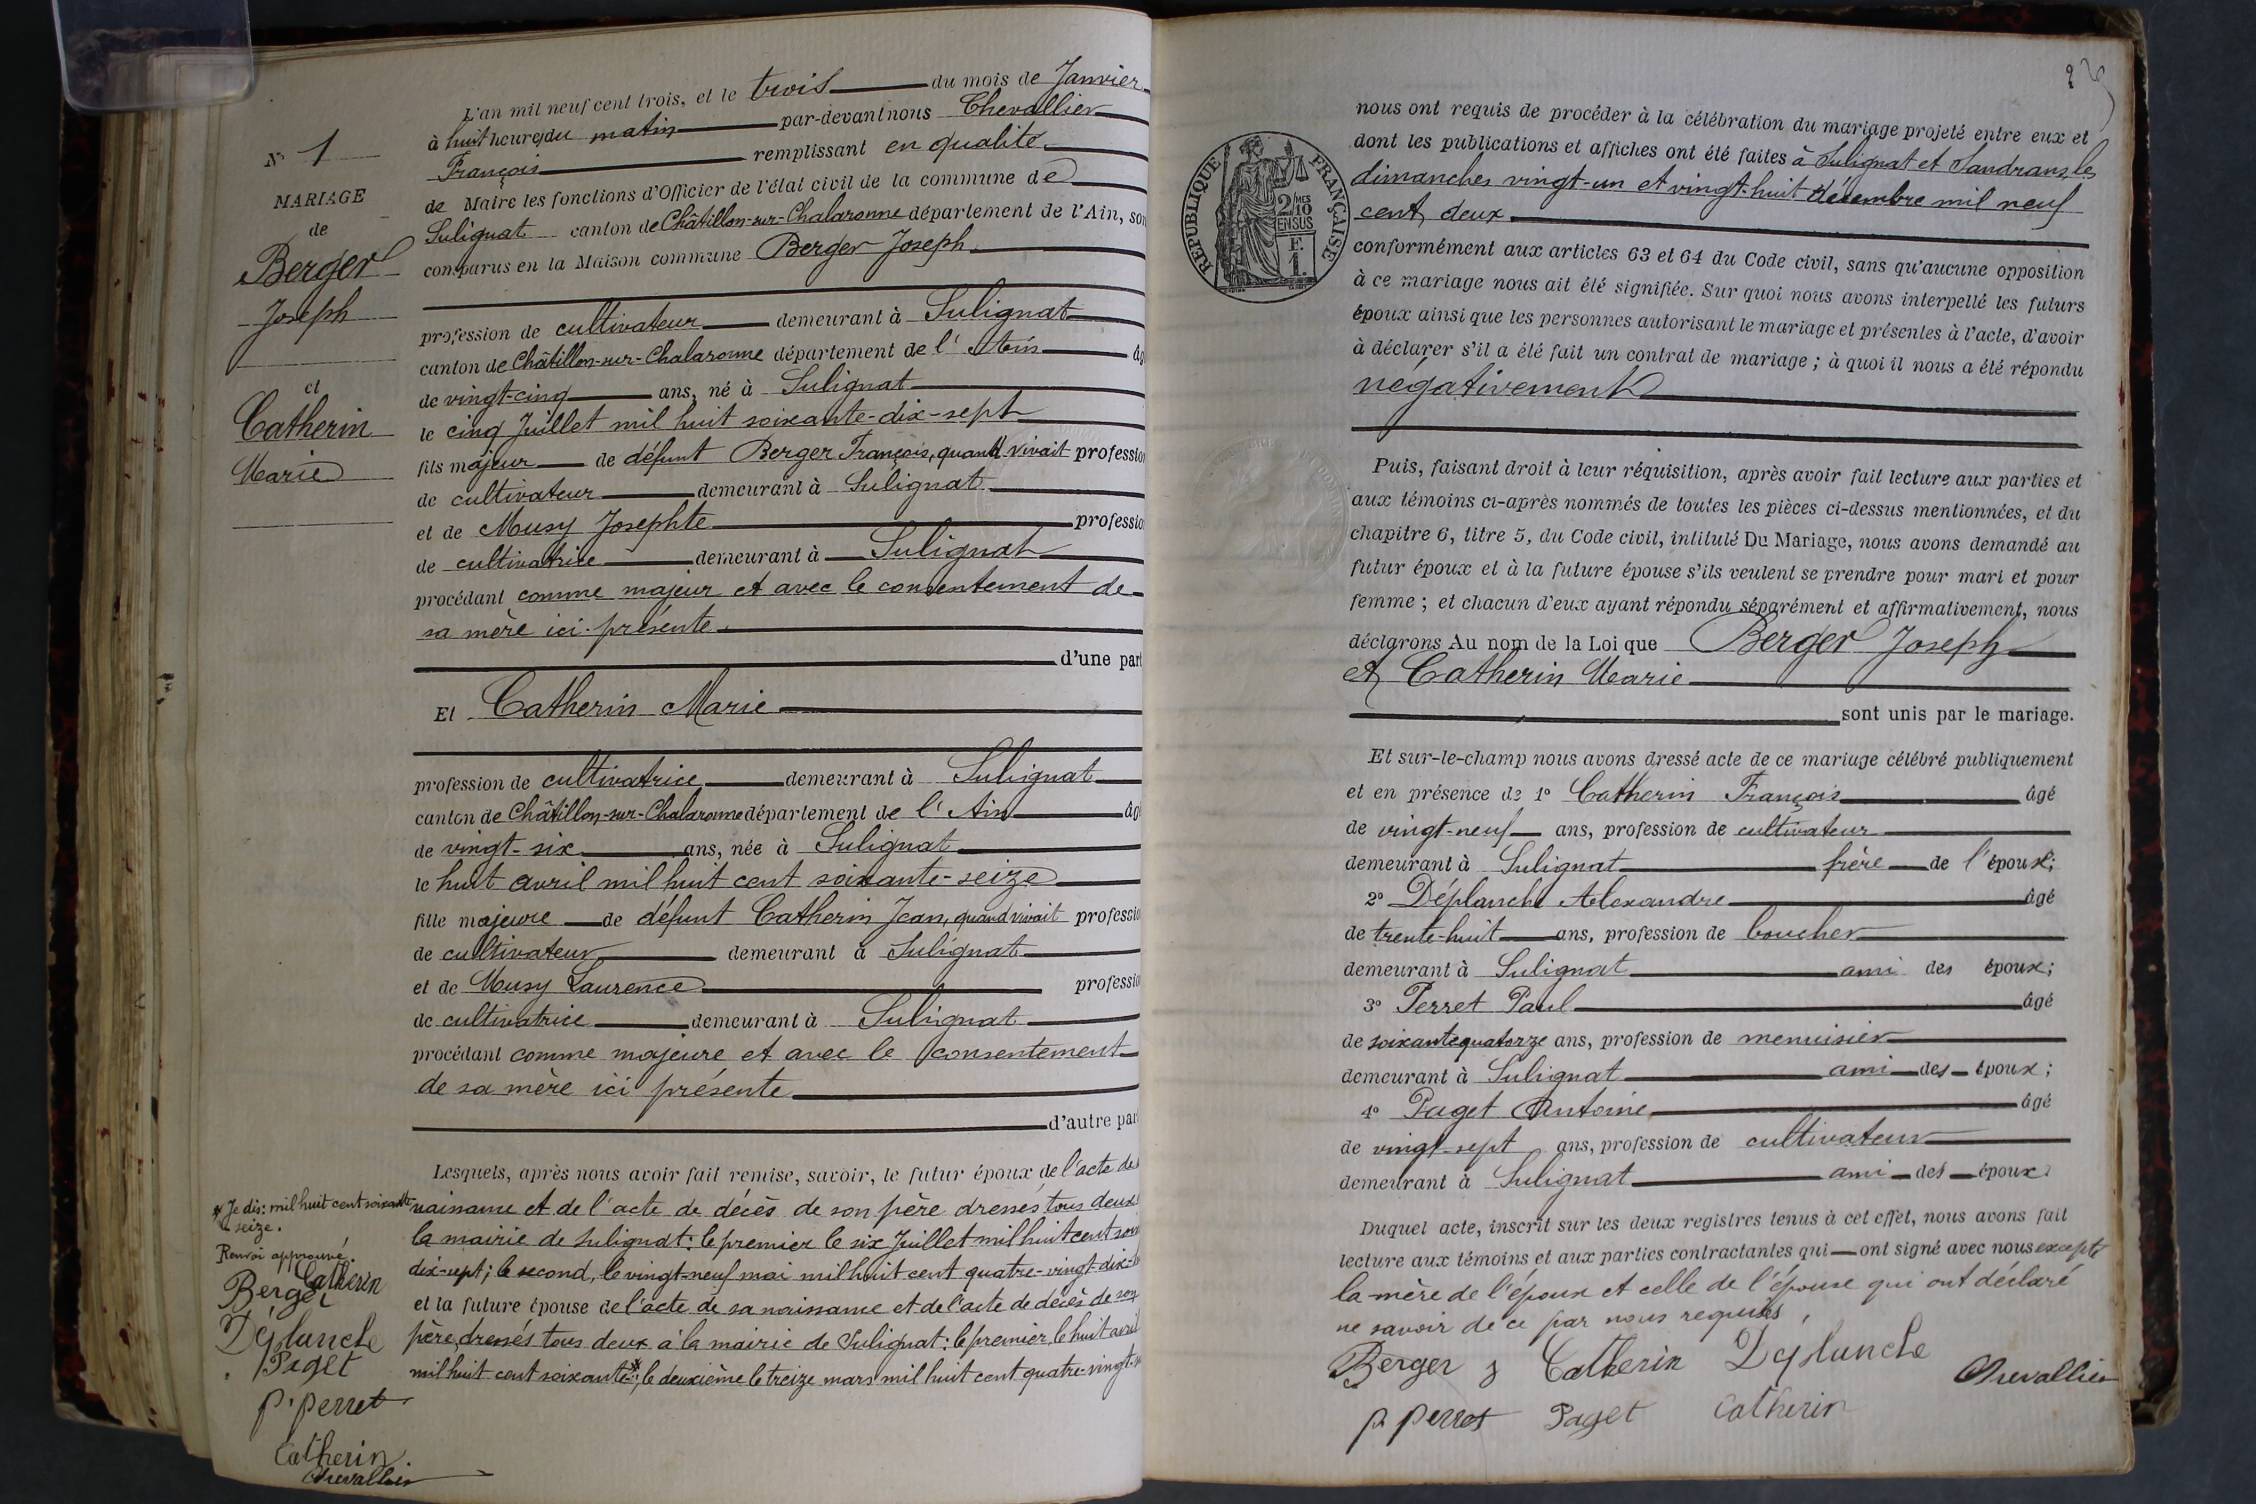 N° 1
MARIAGE
de
Berger
Joseph
et
Catherin
Marie
L'an mil neuf cent trois, et le trois du mois de Janvier
à huit heures du matin par-devant nous Chevallier
François remplissant en qualité
de Maire les fonctions d'Officier de l'état civil de la commune de
Sulignat canton de Châtillon-sur-Chalaronne département de l'Ain, son
comparus en la Maison commune Berger Joseph
profession de cultivateur demeurant à Sulignat
canton de Châtillon-sur-Chalaronne département de l'Ain âg
de vingt-cinq ans, né à Sulignat
le cinq Juillet mil huit soixante-dix-sept
fils majeur de défunt Berger François, quand vivait professio
de cultivateur demeurant à Sulignat
et de Musy Josephte professio
de cultivatrice demeurant à Sulignat
procédant comme majeur et avec le consentement de
sa mère ici présente
d'une part
Et Catherin Marie
profession de cultivatrice demeurant à Sulignat
canton de Châtillon-sur-Chalaronne département de l'Ain âg
de vingt-six ans, née à Sulignat
le huit avril mil huit cent soixante-seize
fille majeure de défunt Catherin Jean, quand vivait professio
de cultivateur demeurant à Sulignat
et de Musy Laurence professio
de cultivatrice demeurant à Sulignat
procédant comme majeure et avec le consentement
de sa mère ici présente
d'autre par
Lesquels, après nous avoir fait remise, savoir, le futur époux de l'acte de
naissance et de l'acte de décès de son père dressés tous deux
la mairie de Sulignat: le premier le six Juillet mil huit cent
dix-sept; le second, le vingt-neuf mai mil huit cent quatre-vingt-dix-
et la future épouse de l'acte de sa naissance et de l'acte de décès de son
père, dressés tous deux à la mairie de Sulignat: le premier, le huit avril
mil huit cent soixante*; le deuxième le treize mars mil huit cent quatre-vingt-
* Je dis: mil huit cent soixante
seize.
Renvoi approuvé.
Catherin
Berger
Déplanche
Paget
P. Perret
Catherin
Chevallier
2
RÉPUBLIQUE FRANÇAISE
2/10
EN SUS
F.
1.
nous ont requis de procéder à la célébration du mariage projeté entre eux et
dont les publications et affiches ont été faites à Sulignat et Sandrans, les
dimanches vingt-un et vingt-huit décembre mil neuf
cent deux
conformément aux articles 63 et 64 du Code civil, sans qu'aucune opposition
à ce mariage nous ait été signifiée. Sur quoi nous avons interpellé les futurs
époux ainsi que les personnes autorisant le mariage et présentes à l'acte, d'avoir
à déclarer s'il a été fait un contrat de mariage ; à quoi il nous a été répondu
négativement
Puis, faisant droit à leur réquisition, après avoir fait lecture aux parties et
aux témoins ci-après nommés de toutes les pièces ci-dessus mentionnées, et du
chapitre 6, titre 5, du Code civil, intitulé Du Mariage, nous avons demandé au
futur époux et à la future épouse s'ils veulent se prendre pour mari et pour
femme ; et chacun d'eux ayant répondu séparément et affirmativement, nous
déclarons Au nom de la Loi que Berger Joseph
et Catherin Marie
sont unis par le mariage.
Et sur-le-champ nous avons dressé acte de ce mariage célébré publiquement
et en présence de 1° Catherin François âgé
de vingt-neuf ans, profession de cultivateur
demeurant à Sulignat frère de l'épouse;
2° Déplanche Alexandre âgé
de trente-huit ans, profession de boucher
demeurant à Sulignat ami des époux;
3° Perret Paul âgé
de soixante quatorze ans, profession de menuisier
demeurant à Sulignat ami des époux;
4° Paget Antoine âgé
de vingt-sept ans, profession de cultivateur
demeurant à Sulignat ami des époux.
Duquel acte, inscrit sur les deux registres tenus à cet effet, nous avons fait
lecture aux témoins et aux parties contractantes qui ont signé avec nous excepté
la mère de l'époux et celle de l'épouse qui ont déclaré
ne savoir de ce par nous requises
Berger J Catherin Déplanche
Chevallier
P. Perret Paget Catherin